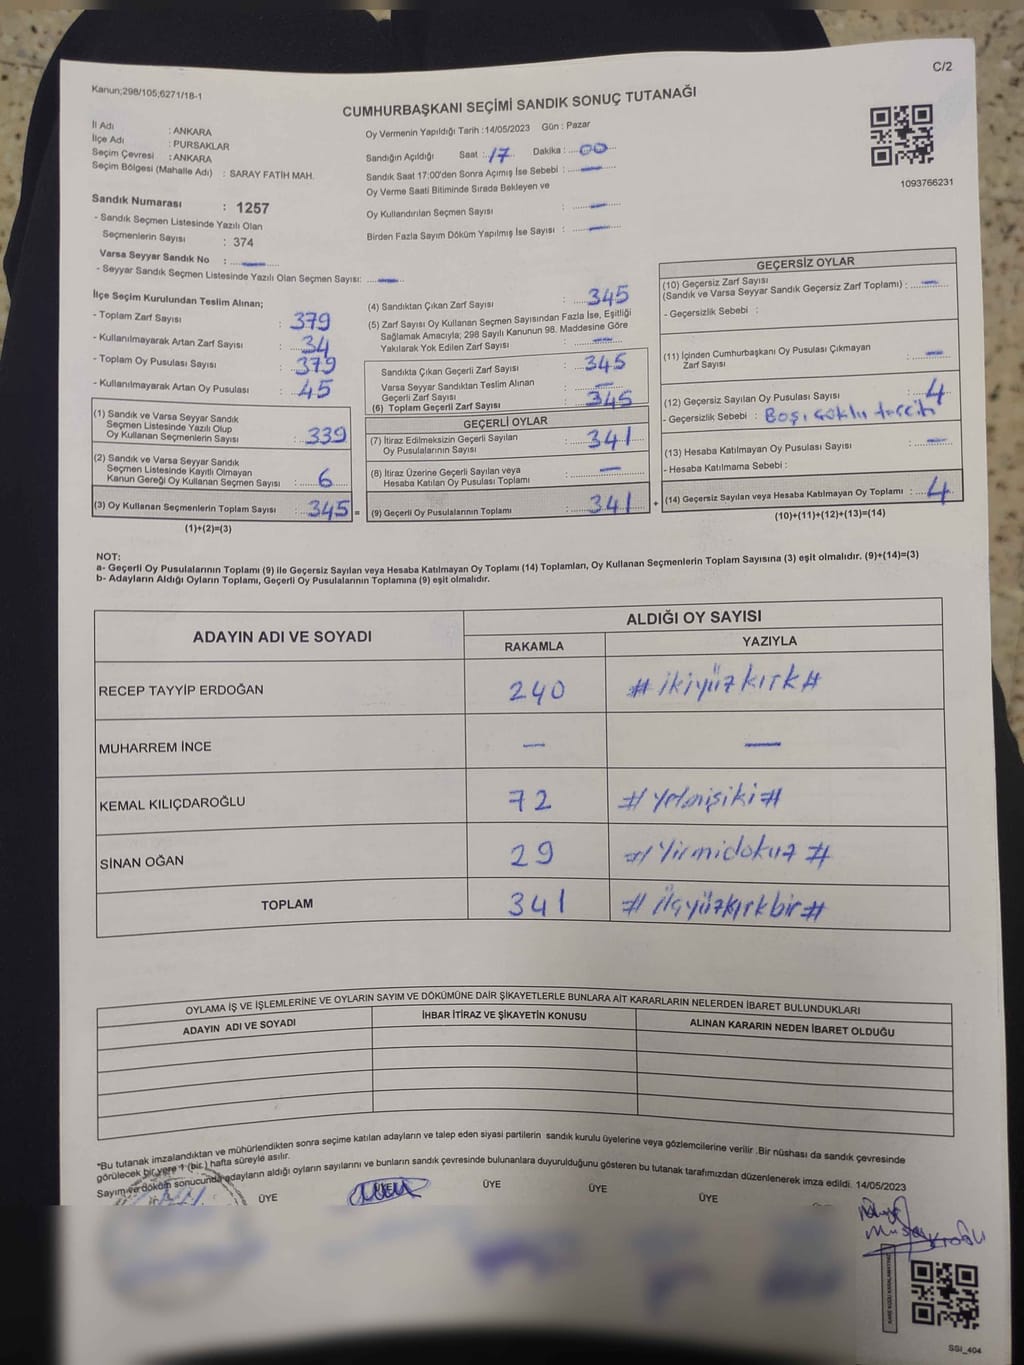 C/2
Kanun;298/105;6271/18-1
CUMHURBAŞKANI SEÇİMİ SANDIK SONUÇ TUTANAĞI
İl Adı : ANKARA
İlçe Adı : PURSAKLAR
Seçim Çevresi : ANKARA
Seçim Bölgesi (Mahalle Adı) : SARAY FATİH MAH.
Sandık Numarası : 1257
- Sandık Seçmen Listesinde Yazılı Olan
Seçmenlerin Sayısı : 374
Varsa Seyyar Sandık No : —
- Seyyar Sandık Seçmen Listesinde Yazılı Olan Seçmen Sayısı: —
Oy Vermenin Yapıldığı Tarih :14/05/2023 Gün : Pazar
Sandığın Açıldığı Saat : 17 Dakika : 00
Sandık Saat 17:00'den Sonra Açımış İse Sebebi : —
Oy Verme Saati Bitiminde Sırada Bekleyen ve
Oy Kullandırılan Seçmen Sayısı : —
Birden Fazla Sayım Döküm Yapılmış İse Sayısı : —
1093766231
İlçe Seçim Kurulundan Teslim Alınan;
- Toplam Zarf Sayısı : 379
- Kullanılmayarak Artan Zarf Sayısı : 34
- Toplam Oy Pusulası Sayısı : 379
- Kullanılmayarak Artan Oy Pusulası : 45
(1) Sandık ve Varsa Seyyar Sandık
Seçmen Listesinde Yazılı Olup
Oy Kullanan Seçmenlerin Sayısı : 339
(2) Sandık ve Varsa Seyyar Sandık
Seçmen Listesinde Kayıtlı Olmayan
Kanun Gereği Oy Kullanan Seçmen Sayısı : 6
(3) Oy Kullanan Seçmenlerin Toplam Sayısı : 345 =
(1)+(2)=(3)
(4) Sandıktan Çıkan Zarf Sayısı : 345
(5) Zarf Sayısı Oy Kullanan Seçmen Sayısından Fazla İse, Eşitliği
Sağlamak Amacıyla; 298 Sayılı Kanunun 98. Maddesine Göre
Yakılarak Yok Edilen Zarf Sayısı : —
Sandıkta Çıkan Geçerli Zarf Sayısı : 345
Varsa Seyyar Sandıktan Teslim Alınan
Geçerli Zarf Sayısı : —
(6) Toplam Geçerli Zarf Sayısı : 345
GEÇERLİ OYLAR
(7) İtiraz Edilmeksizin Geçerli Sayılan
Oy Pusulalarının Sayısı : 341
(8) İtiraz Üzerine Geçerli Sayılan veya
Hesaba Katılan Oy Pusulası Toplamı : —
(9) Geçerli Oy Pusulalarının Toplamı : 341 +
GEÇERSİZ OYLAR
(10) Geçersiz Zarf Sayısı
(Sandık ve Varsa Seyyar Sandık Geçersiz Zarf Toplamı) : —
- Geçersizlik Sebebi :
(11) İçinden Cumhurbaşkanı Oy Pusulası Çıkmayan
Zarf Sayısı : —
(12) Geçersiz Sayılan Oy Pusulası Sayısı : 4
- Geçersizlik Sebebi : Boş,
(13) Hesaba Katılmayan Oy Pusulası Sayısı : —
- Hesaba Katılmama Sebebi :
(14) Geçersiz Sayılan veya Hesaba Katılmayan Oy Toplamı : 4
(10)+(11)+(12)+(13)=(14)
NOT:
a- Geçerli Oy Pusulalarının Toplamı (9) ile Geçersiz Sayılan veya Hesaba Katılmayan Oy Toplamı (14) Toplamları, Oy Kullanan Seçmenlerin Toplam Sayısına (3) eşit olmalıdır. (9)+(14)=(3)
b- Adayların Aldığı Oyların Toplamı, Geçerli Oy Pusulalarının Toplamına (9) eşit olmalıdır.
ADAYIN ADI VE SOYADI
ALDIĞI OY SAYISI
RAKAMLA YAZIYLA
RECEP TAYYİP ERDOĞAN 240 # ikiyüzkırk #
MUHARREM İNCE — —
KEMAL KILIÇDAROĞLU 72 # Yetmişiki #
SİNAN OĞAN 29 # Yirmidokuz #
TOPLAM 341 # üçyüzkırkbir #
OYLAMA İŞ VE İŞLEMLERİNE VE OYLARIN SAYIM VE DÖKÜMÜNE DAİR ŞİKAYETLERLE BUNLARA AİT KARARLARIN NELERDEN İBARET BULUNDUKLARI
ADAYIN ADI VE SOYADI İHBAR İTİRAZ VE ŞİKAYETİN KONUSU ALINAN KARARIN NEDEN İBARET OLDUĞU
*Bu tutanak imzalandıktan ve mühürlendikten sonra seçime katılan adayların ve talep eden siyasi partilerin sandık kurulu üyelerine veya gözlemcilerine verilir .Bir nüshası da sandık çevresinde
görülecek bir yere 1 (bir ) hafta süreyle asılır.
Sayım ve döküm sonucunda adayların aldığı oyların sayılarını ve bunların sandık çevresinde bulunanlara duyurulduğunu gösteren bu tutanak tarafımızdan düzenlenerek imza edildi. 14/05/2023
ÜYE ÜYE ÜYE ÜYE ÜYE
SSI_404